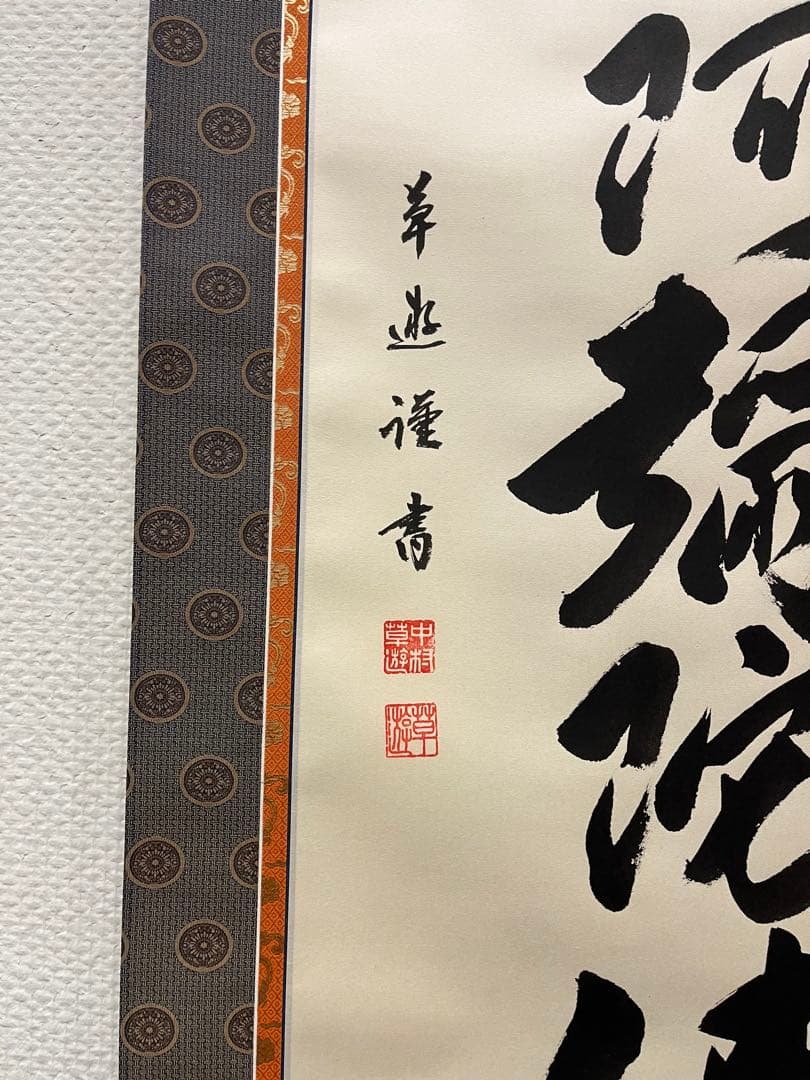 阿彌陀佛
草遊謹書
中村草遊
草遊